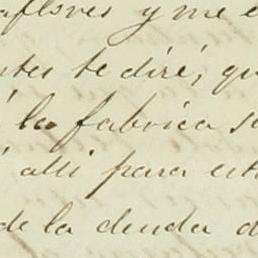 y me
te diré, qu
la fabrica s
alli para est
de la deuda d